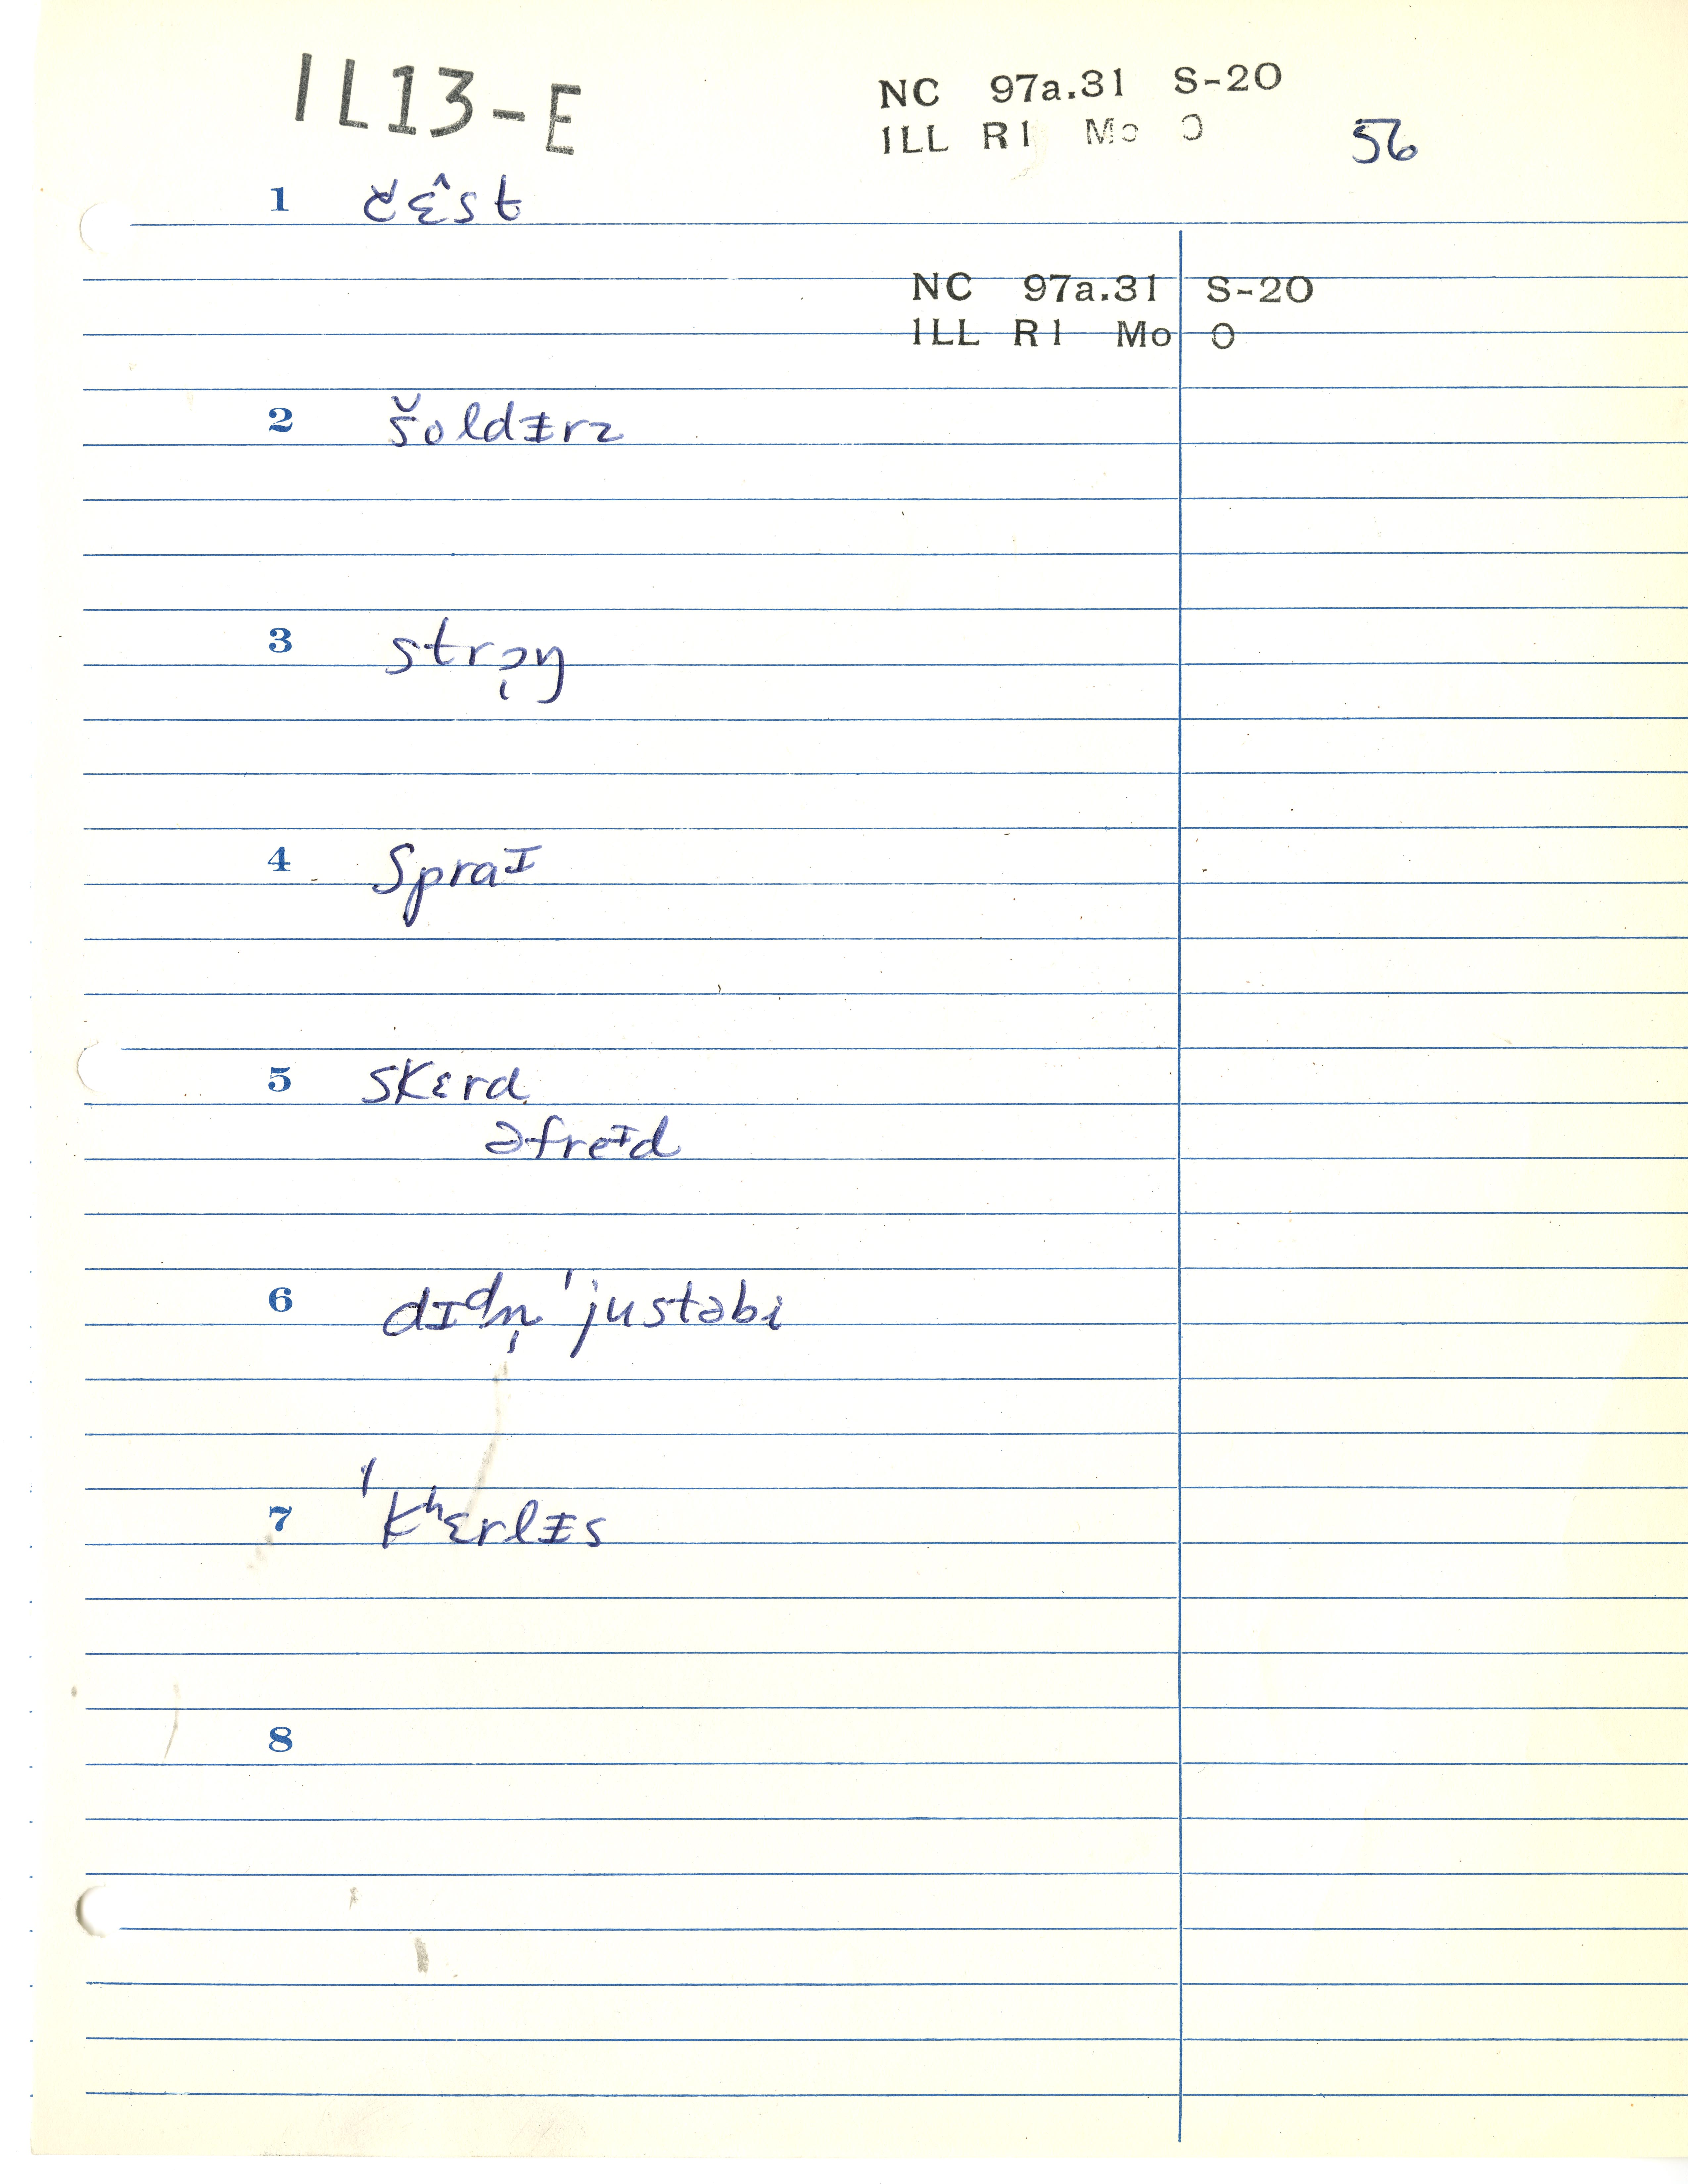 IL13-E
NC 97a.31 S-20
ILL R1 Mo O
56
1 rɛ̂st
NC 97a.31 S-20
ILL R1 Mo O
2 šoldɪ̵rz
3 strɔ̨ŋ
4 spraᶦ
5 skɛrd
əfreᶦd
6 dɪᵈn̩ ˈjustəbi
7 ˈkʰɛrlɪ̵s
8